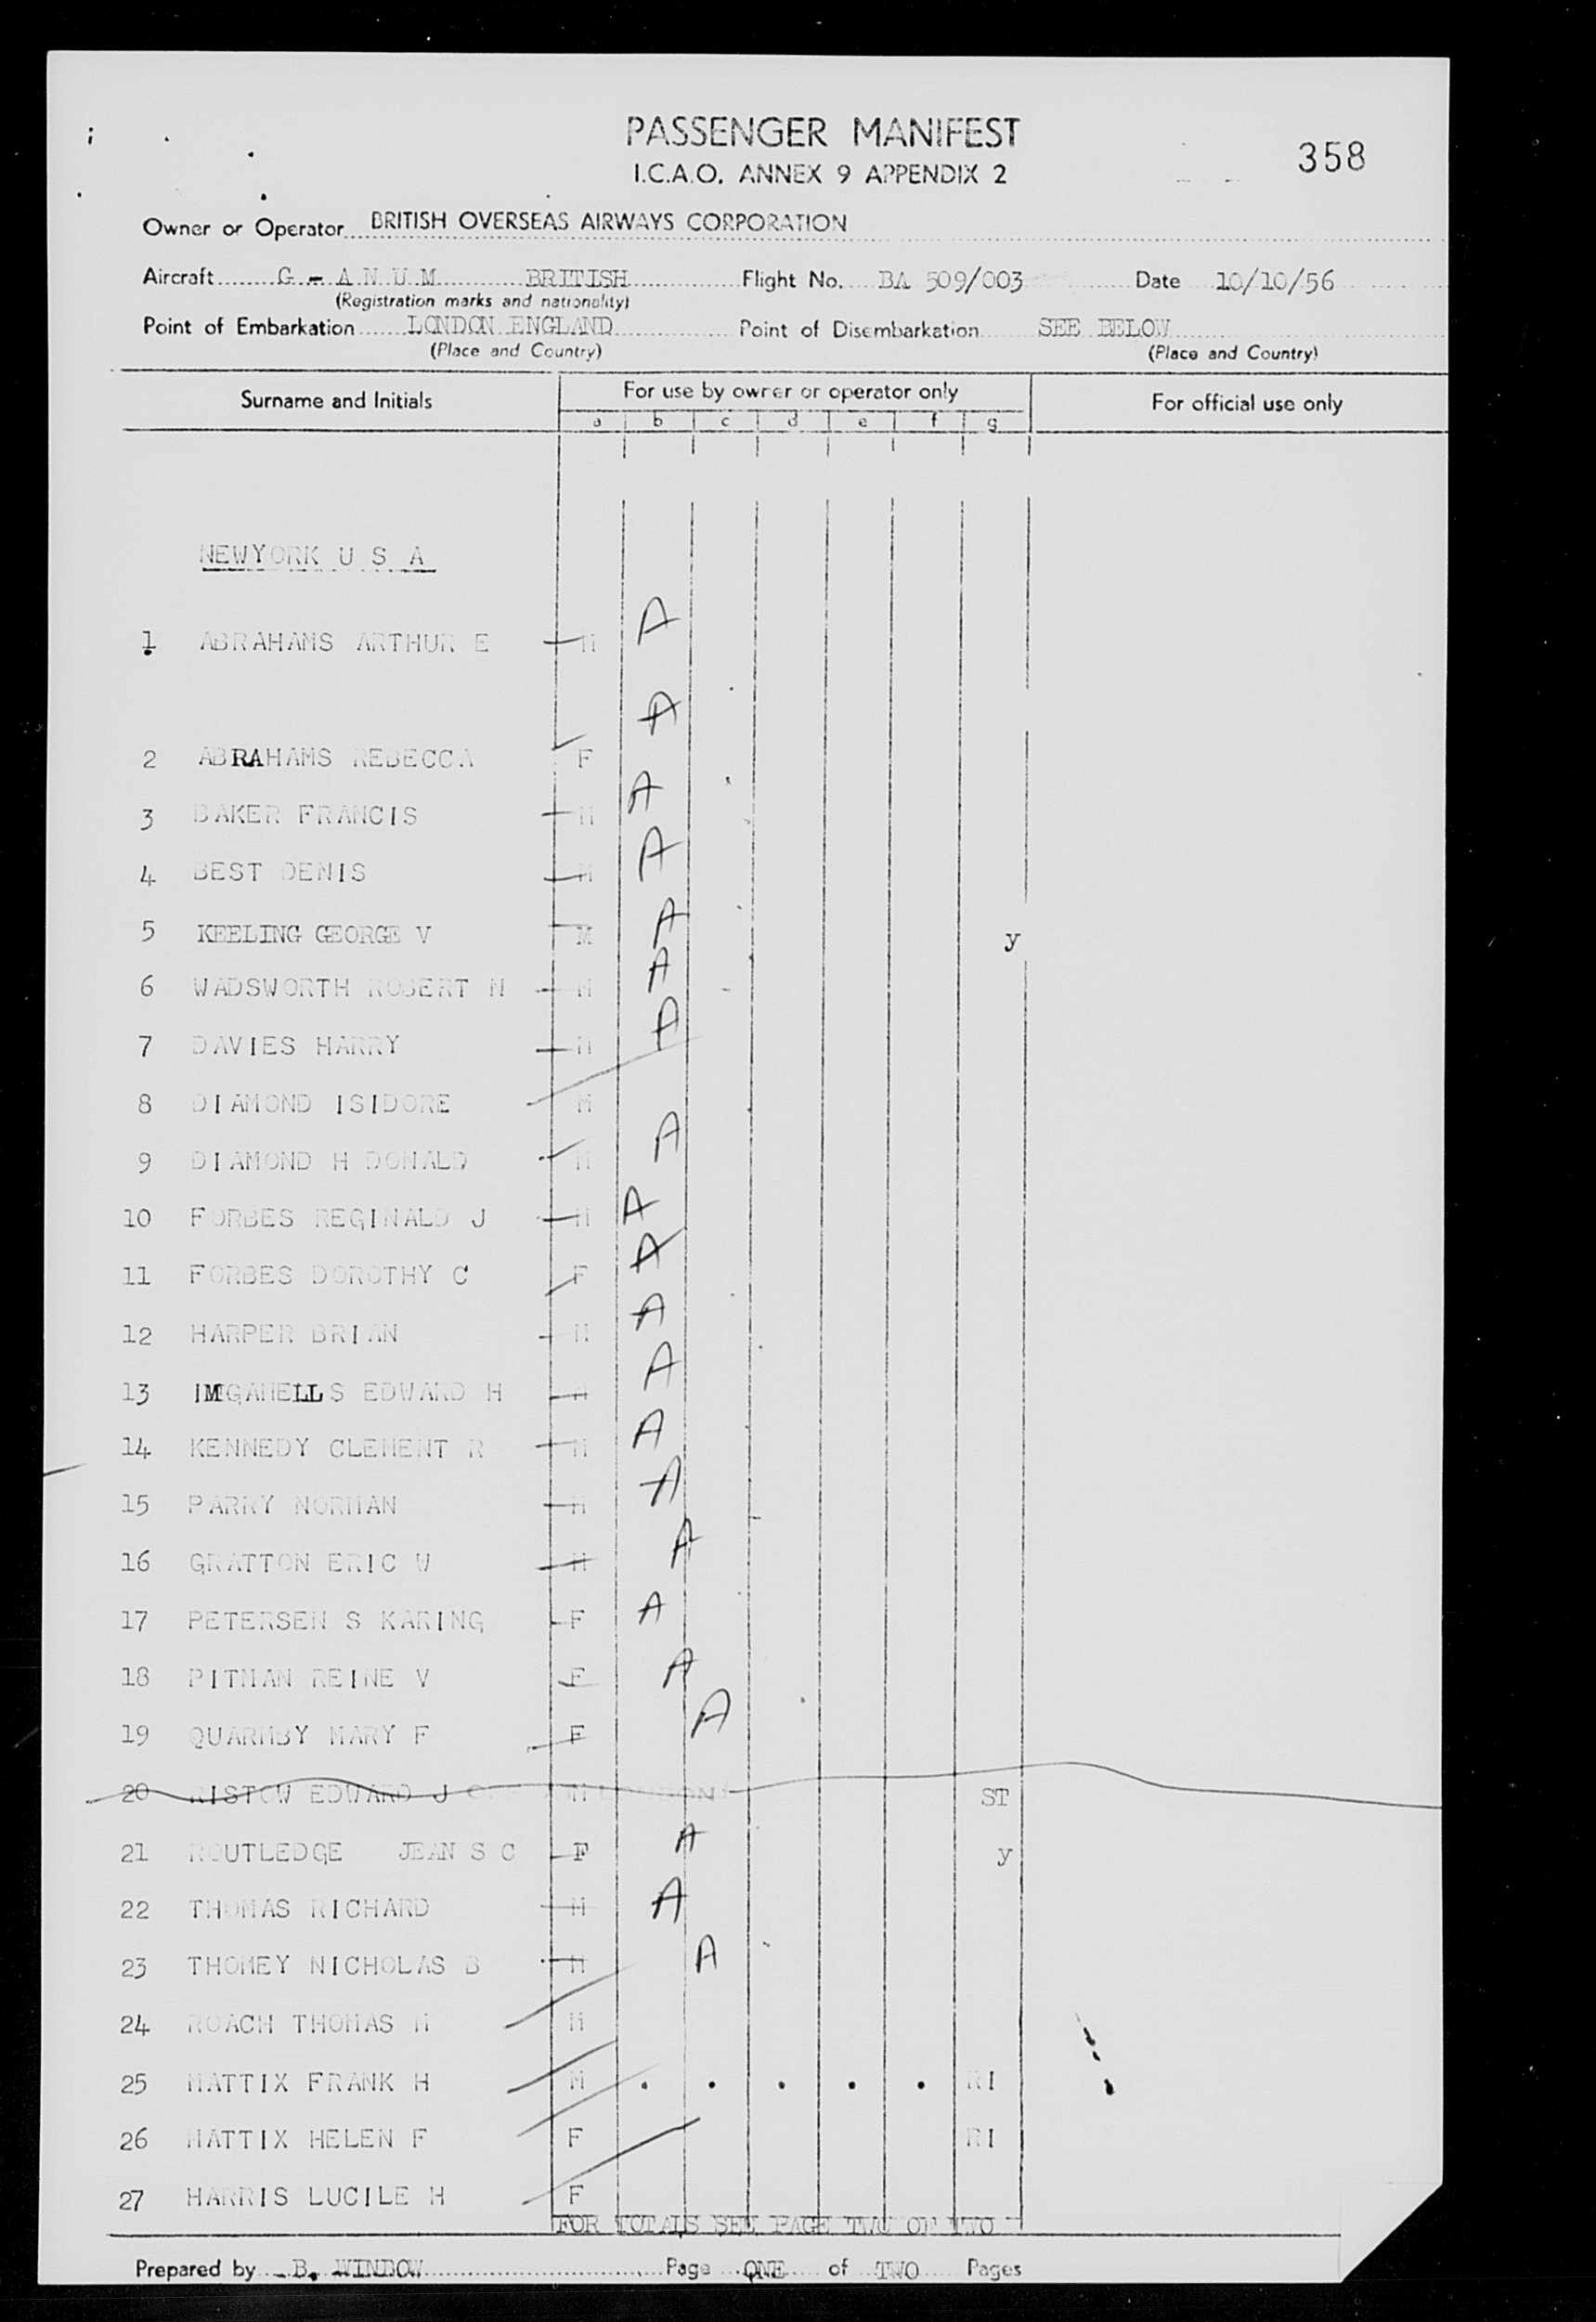 PASSENGER MANIFEST
I.C.A.O. ANNEX 9 APPENDIX 2
358
Owner or Operator BRITISH OVERSEAS AIRWAYS CORPORATION
Aircraft G - A N U M BRITISH Flight No. BA 509/003 Date 10/10/56
(Registration marks and nationality)
Point of Embarkation LONDON ENGLAND Point of Disembarkation SEE BELOW
(Place and Country) (Place and Country)
Surname and Initials For use by owner or operator only For official use only
a b c d e f g
NEWYORK U S A
1 ABRAHAMS ARTHUR E M A
2 ABRAHAMS REBECCA F A
3 BAKER FRANCIS M A
4 BEST DENIS M A
5 KEELING GEORGE V M A y
6 WADSWORTH ROBERT N M A
7 DAVIES HARRY M A
8 DIAMOND ISIDORE M
9 DIAMOND H DONALD M A
10 FORBES REGINALD J M A
11 FORBES DOROTHY C F A
12 HARPER BRIAN M A
13 EDWARD H M A
14 KENNEDY CLEMENT R M A
15 PARRY NORMAN M A
16 GRATTON ERIC W M A
17 PETERSEN S KARING F A
18 PITMAN REINE V F A
19 QUARMBY MARY F F A
20 RISTOW EDWARD J M ST
21 ROUTLEDGE JEAN S C F A y
22 THOMAS RICHARD M A
23 THOMEY NICHOLAS B M A
24 ROACH THOMAS M M
25 MATTIX FRANK H M . . . . . RI
26 MATTIX HELEN F F RI
27 HARRIS LUCILE H F
FOR TOTALS SEE PAGE TWO OF TWO
Prepared by B. WINBOW Page ONE of TWO Pages